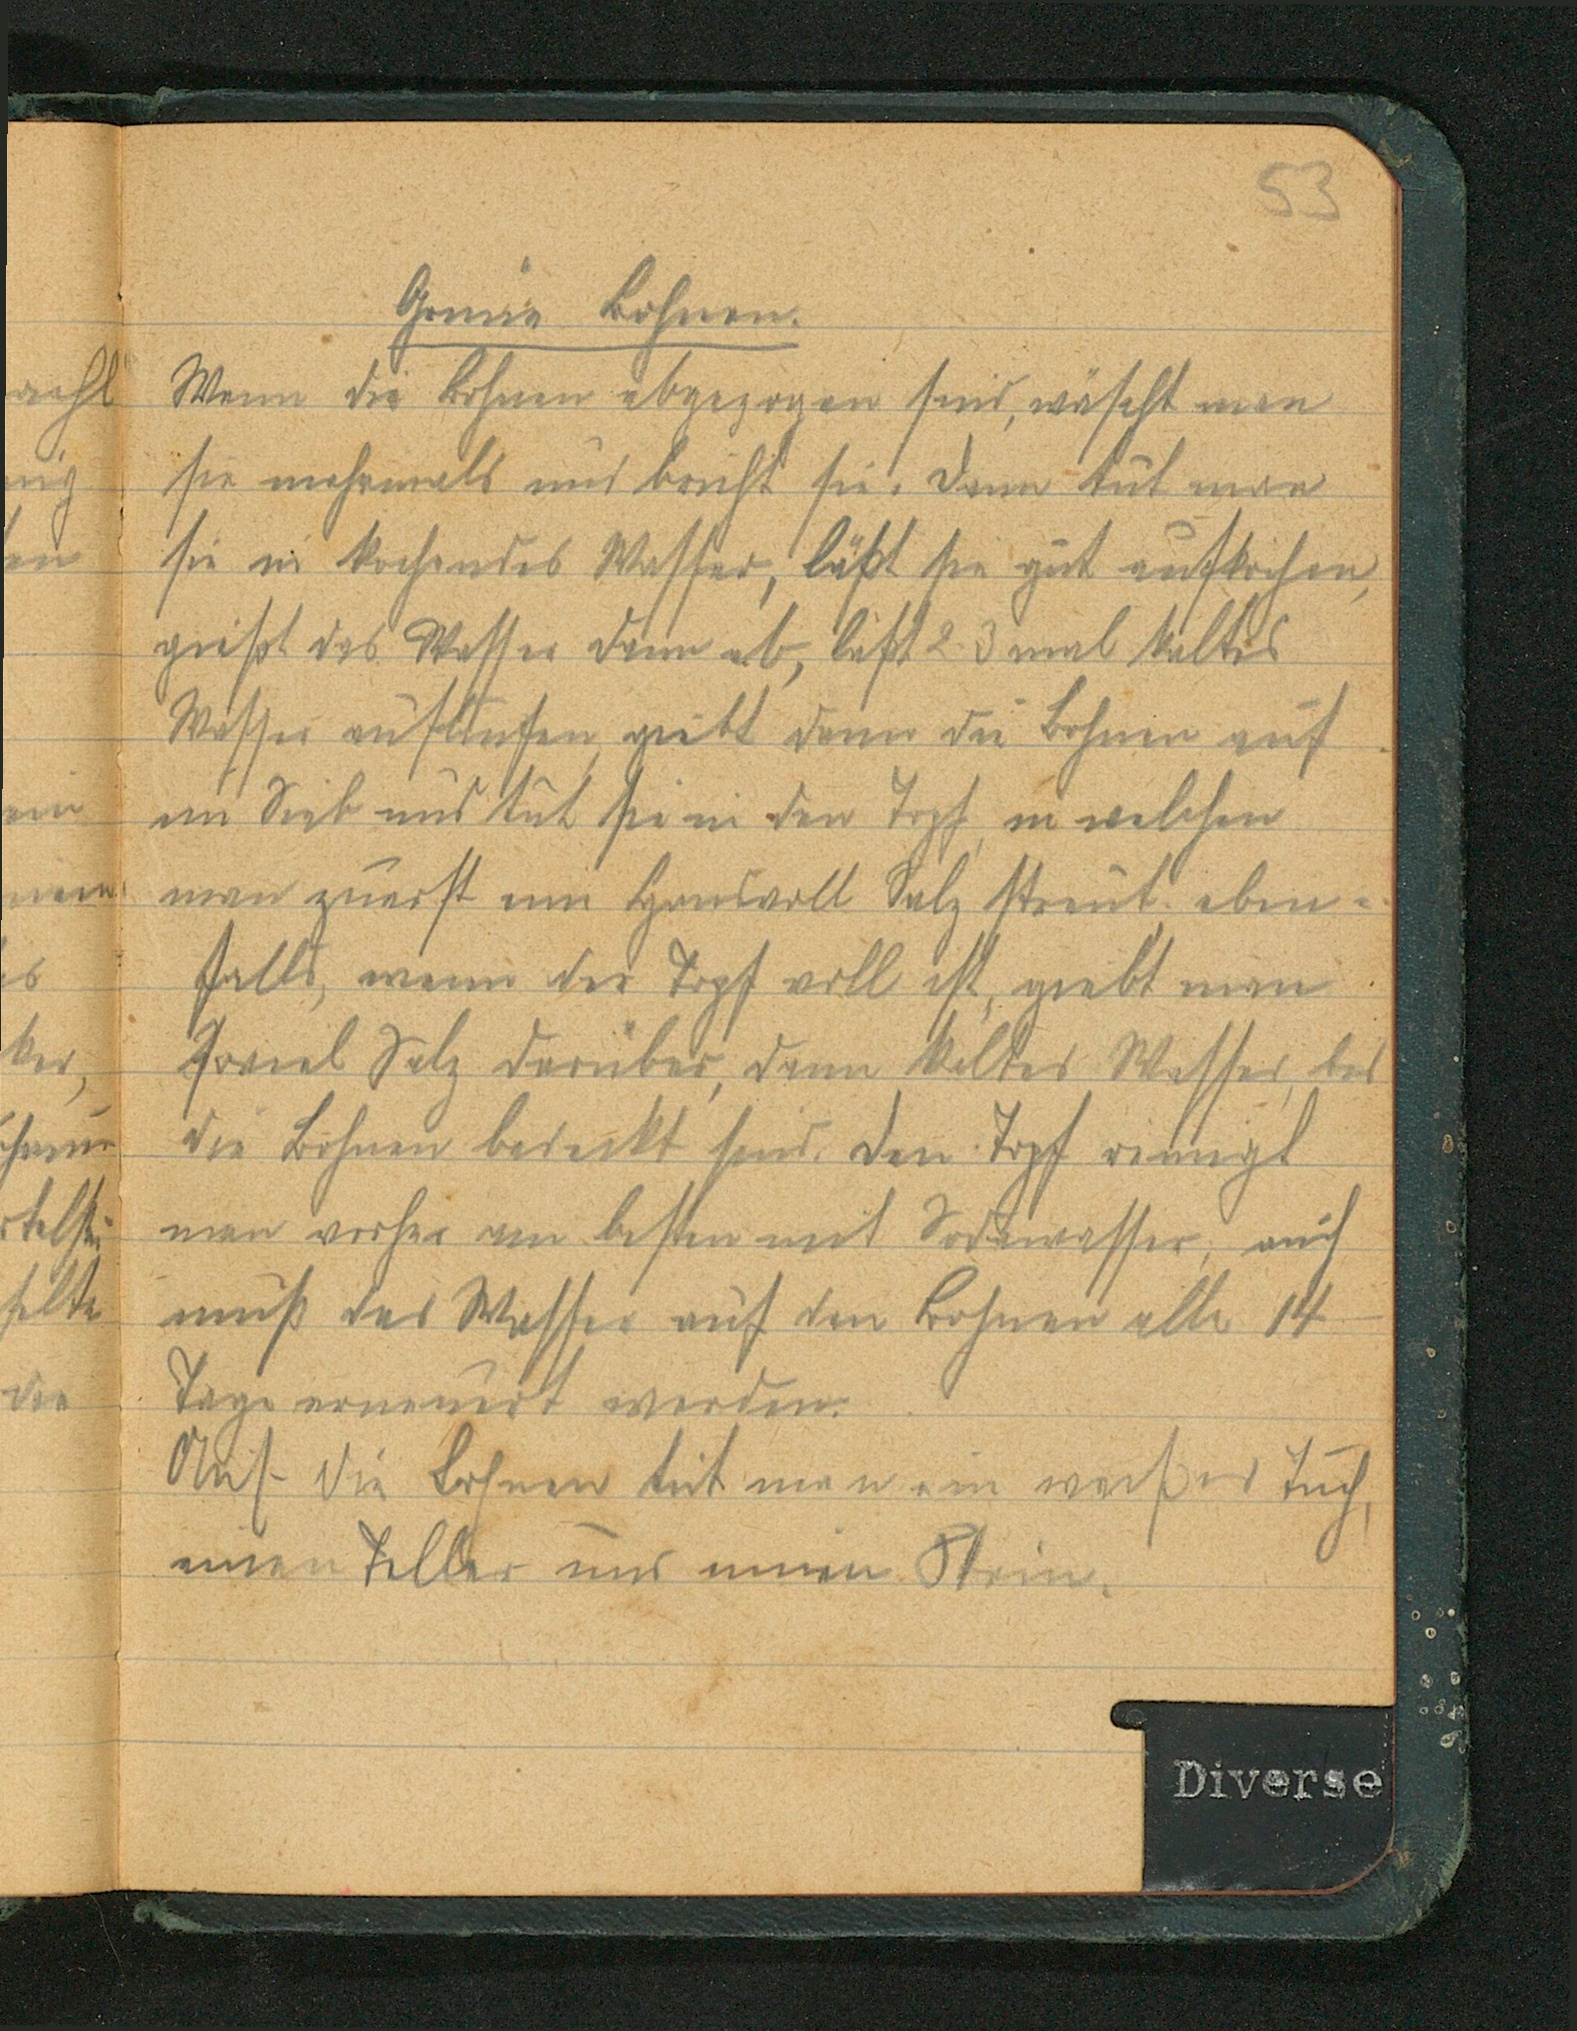 53
Grüne Bohnen.
mehl
Wenn die Bohnen abgezogen sind, wäscht man
sie mehrmals und bricht sie. Dann tut man
en
sie in kochendes Wasser, läßt sie gut aufkochen,
gießt das Wasser dann ab, läßt 2 3 mal kaltes
Wasser auflaufen, giebt dann die Bohnen auf
ein
ein Sieb und tut sie in den Topf, in welchen
man zuerst eine Handvoll Salz streut. eben-
es
falls, wenn der Topf voll ist, giebt man
ker,
soviel Salz darüber, dann kaltes Wasser, bis
die Bohnen bedeckt sind. Den Topf reinigt
man vorher am besten mit Sodawasser, auch
muß das Wasser auf den Bohnen alle 14
die
Tage erneuert werden.
Auf die Bohnen tut man ein weißes Tuch,
einen Teller und einen Stein.
Diverse